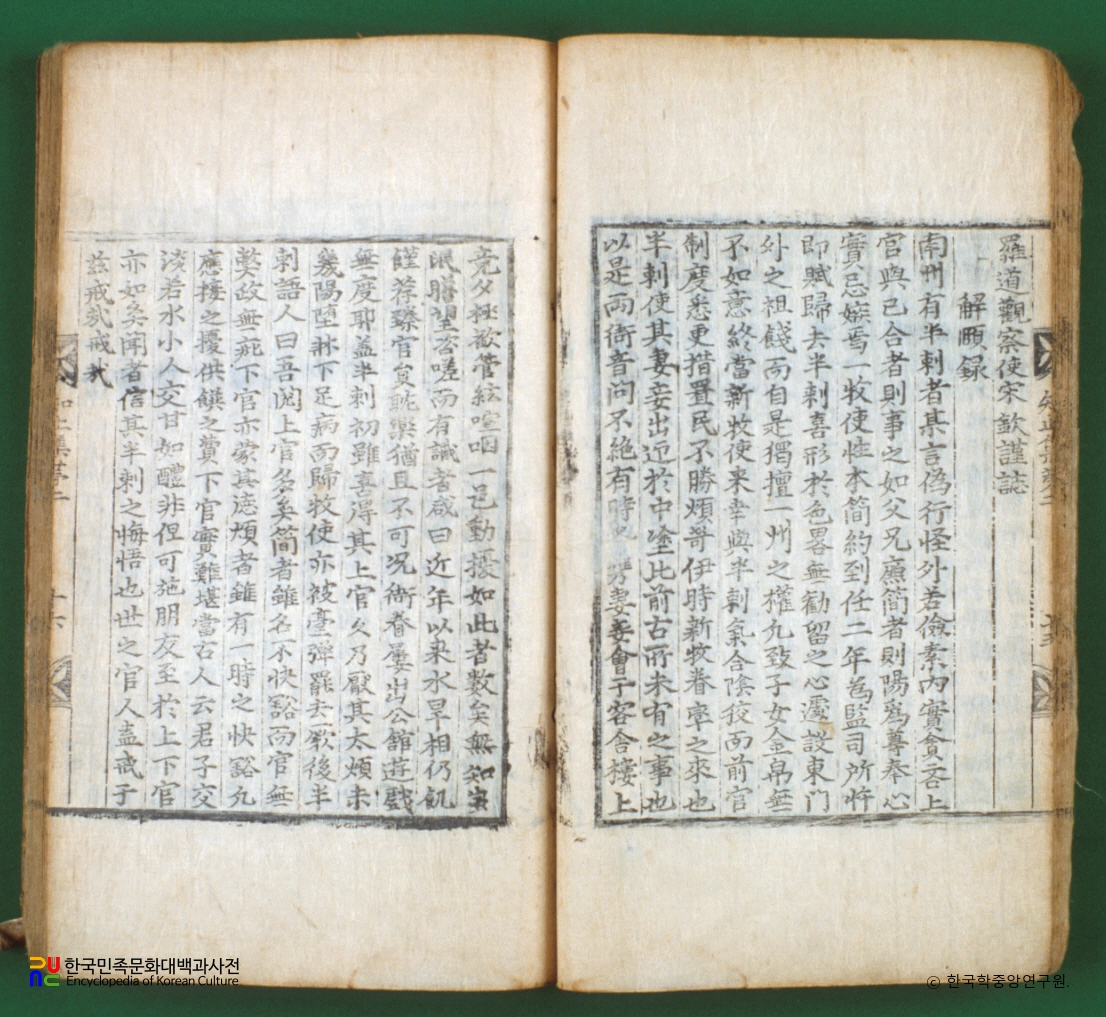 羅道觀察使宋 歆謹誌
解頤錄
南州有半刺者其言偽行怪外若儉素內實貪吝上
官與己合者則事之如父兄廉簡者則陽爲尊奉心
實忌嫉焉一牧使性本簡約到任二年為監司所忤
即賦歸去半刺喜形於色畧無勸留之心遽設東門
外之祖餞而自是獨擅一州之權凡致子女金帛無
不如意終當新牧使来幸與半刺氣合陰狡而前官
制度悉更措置民不勝煩苛伊時新牧眷率之來也
半刺使其妻妾出迎於中塗此前古所未有之事也
以是兩衙音問不絶有時 妻妾會于客舍樓上
竞夕極歡管絃喧咽一邑動擾如此者數矣無知
氓膽望咨嗟而有識者咸曰近年以来水旱相仍飢
饉荐臻官妓軱樂猶且不可况衙眷屢出公舘遊戱
無度耶盖半刺初雖喜得其上官久乃厭其太煩未
幾陽墮 下足病而歸牧使亦被臺彈罷去厥後半
刺語人曰吾閱上官多矣简者雖若不快豁而官無
獘政無疵下官亦蒙其德煩者雖有一時之快豁凡
應接之擾供饋之費下官實難堪當古人云君子交
淡若水小人交甘如醴非但可施朋友至於上下官
亦如矣聞者信其半刺之悔悟也世之官人盖戒于
玆戒㢤戒㢤
知止集卷二
十六
한국민족문화대백과사전
Encyclopedia of Korean Culture
© 한국학중앙연구원.